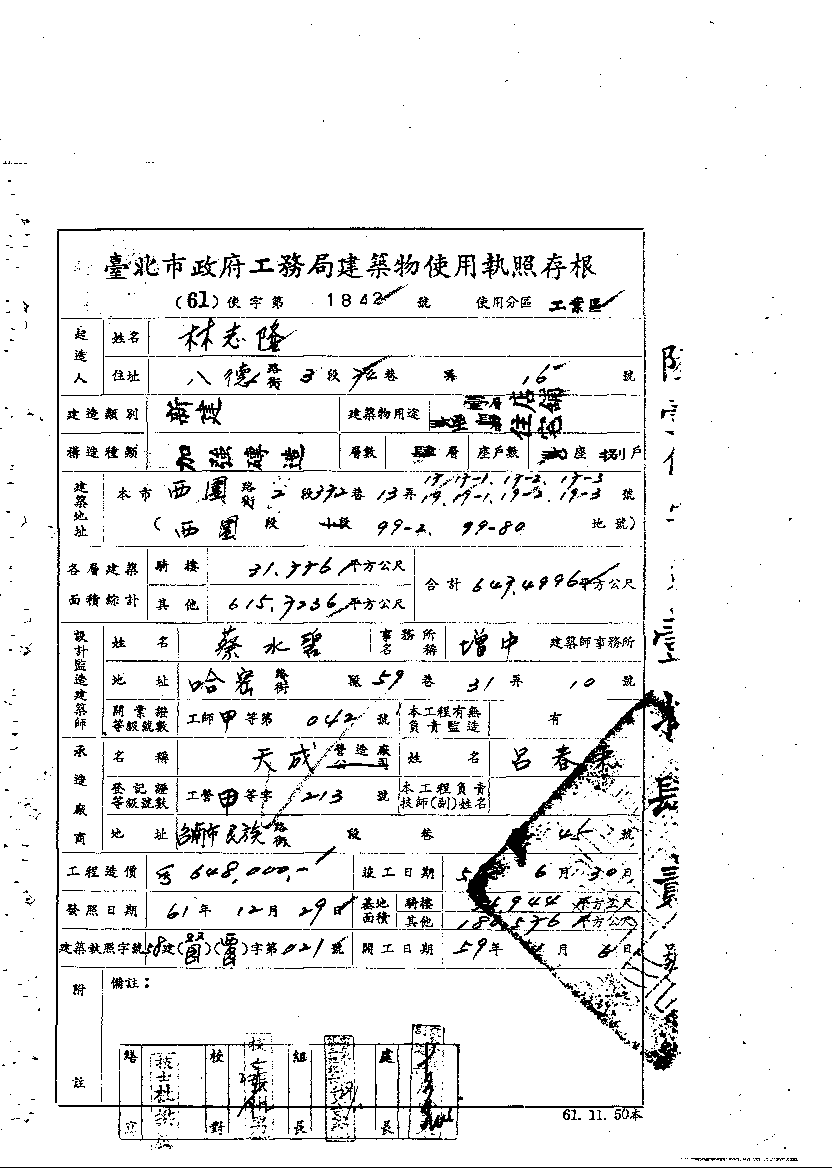 臺北市政府工務局建築物使用執照存根
(61)使字第 1842 號 使用分區 工業區
起造人 姓名 林志隆
住址 八德路街 3段 巷 弄 16 號
建造類別 新建 建築物用途 店舖住宅
構造種類 加強磚造 層數 肆層 座戶數 座 捌戶
建築地址 本市西園路街 2段372巷13弄 17,17-1,17-2,17-3 19,19-1,19-2,19-3 號
(西園 段 段 99-2、99-80 地號)
各層建築面積綜計 騎樓 31.776平方公尺 合計 647.4996平方公尺
其他 615.7236平方公尺
設計監造建築師 姓名 蔡水碧 事務所名稱 增中 建築師事務所
地址 哈密路街 段 59巷 31弄 10號
開業證等級號數 工師甲等第 042 號 本工程有無負責監造 有
承造廠商 名稱 天成營造廠公司 姓名 呂春
登記證等級號數 工營甲等字 213 號 本工程負責技師(副)姓名
地址 台南市民族路街 段 巷 45 號
工程造價 648,000,- 竣工日期 6月30日
發照日期 61年12月29日 基地面積 騎樓 4944 平方公尺
其他 平方公尺
建築執照字號58建( )( )字第021號 開工日期 59年 月6日
附註 備註:
校對 組長 處長
61. 11. 50本